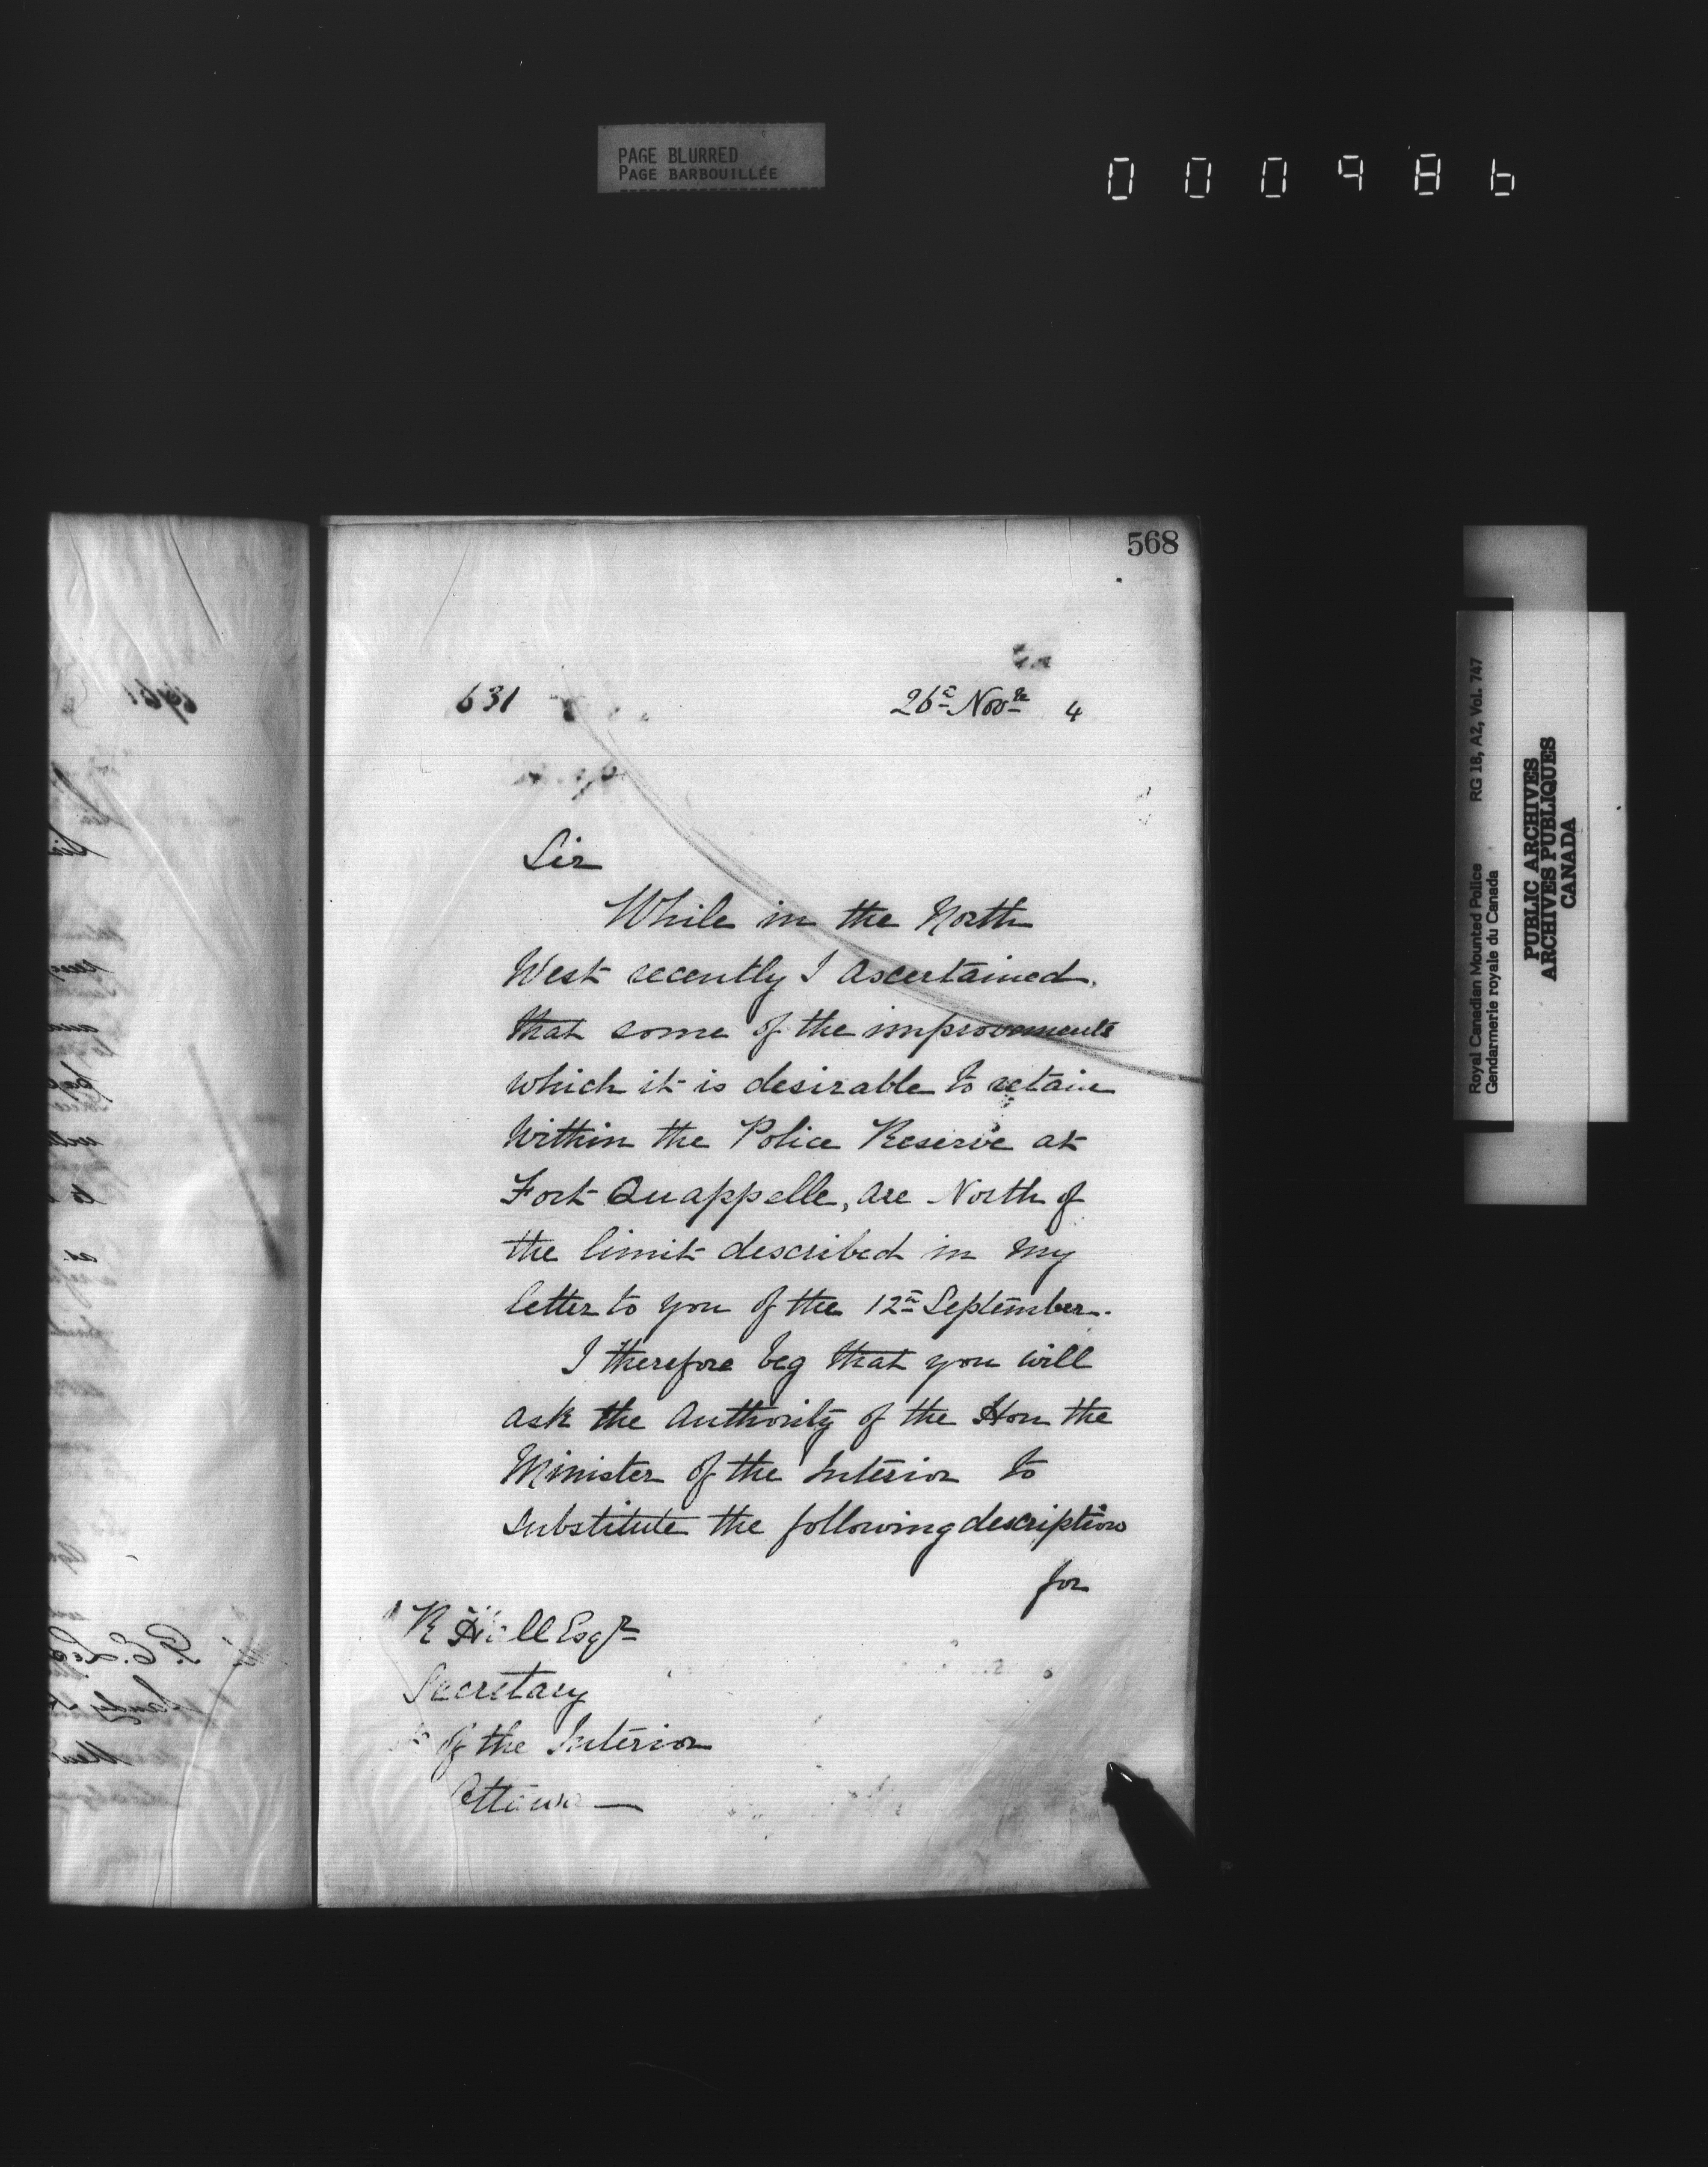 PAGE BLURRED
PAGE BARBOUILLÉE
000986
568
631 26th Novr 4
Sir
While in the North
West recently I ascertained
that some of the improvements
which it is desirable to retain
within the Police Reserve at
Fort Quappelle, are North of
the limit described in my
letter to you of the 12th September.
I therefore beg that you will
ask the Authority of the Hon the
Minister of the Interior to
substitute the following description
for
R Hall Esqr
Secretary
of the Interior
Ottawa
Royal Canadian Mounted Police RG 18, A2, Vol. 747
Gendarmerie royale du Canada
PUBLIC ARCHIVES
ARCHIVES PUBLIQUES
CANADA